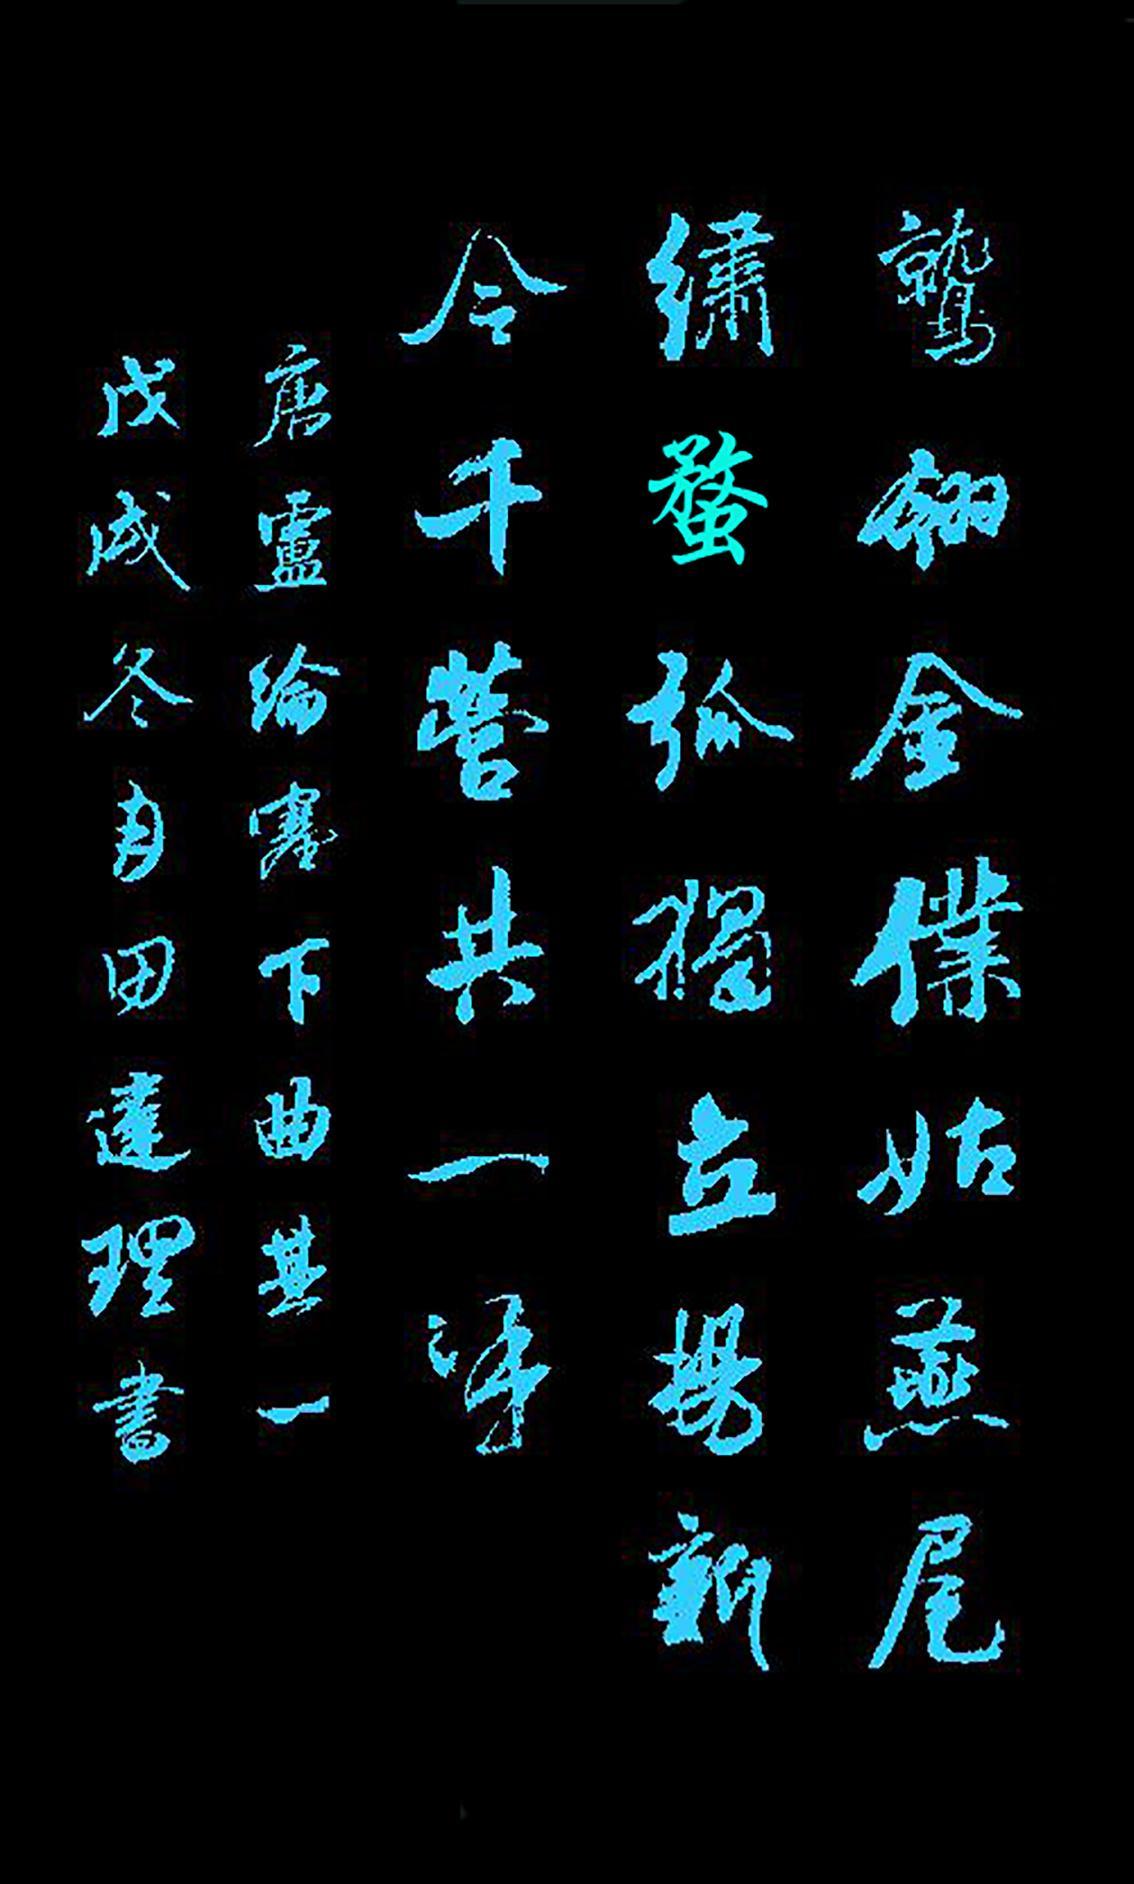 鷲翎金僕姑燕尾
繡蝥弧獨立揚新
令千營共一呼
唐盧綸塞下曲其一
戊戌冬月田達理書